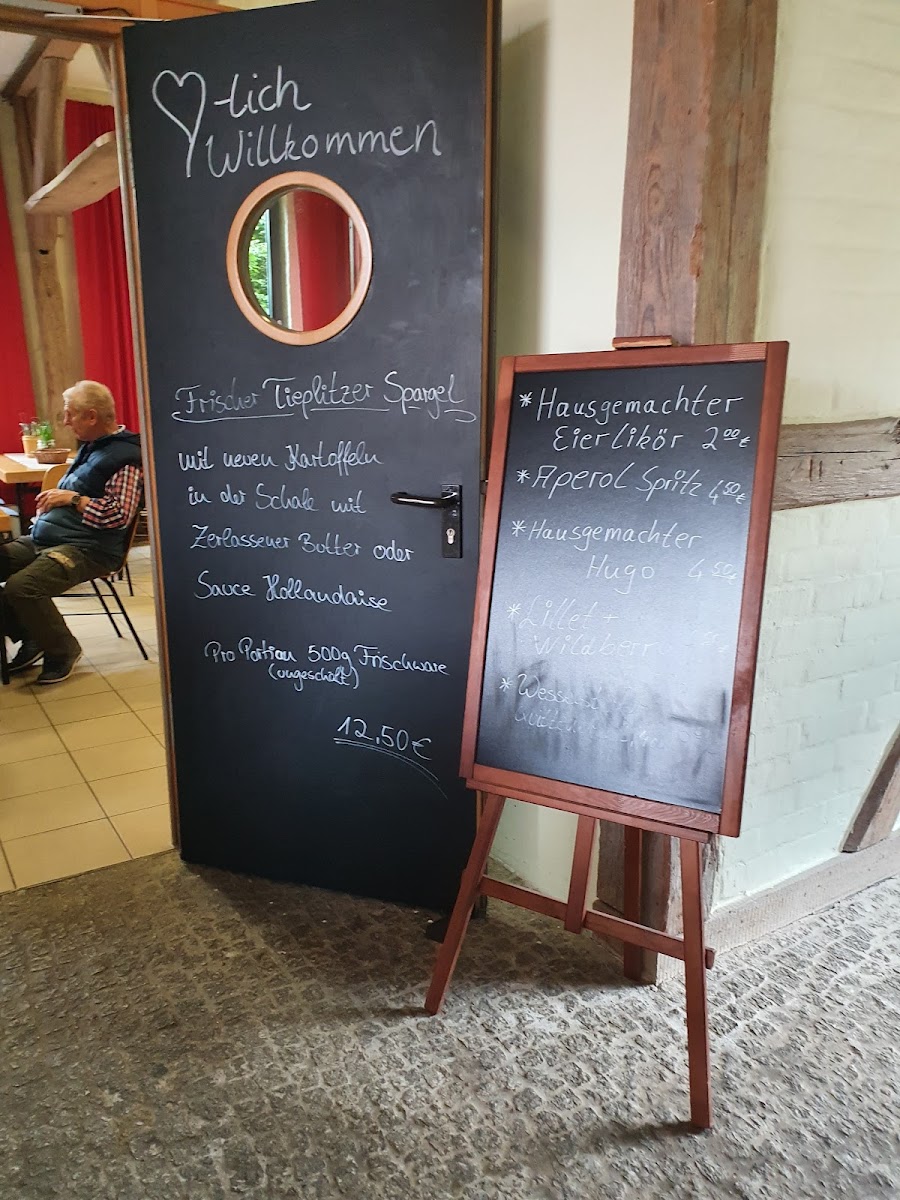 -lich
Willkommen
Frischer Tieplitzer Spargel
mit neuen Kartoffeln
in der Schale mit
Zerlassener Butter oder
Sauce Hollandaise
Pro Portion 500g Frischware
(ungeschält)
12,50€
* Hausgemachter
Eierlikör 2,00€
* Aperol Spritz 4,50€
* Hausgemachter
Hugo 4,50€
* Lillet +